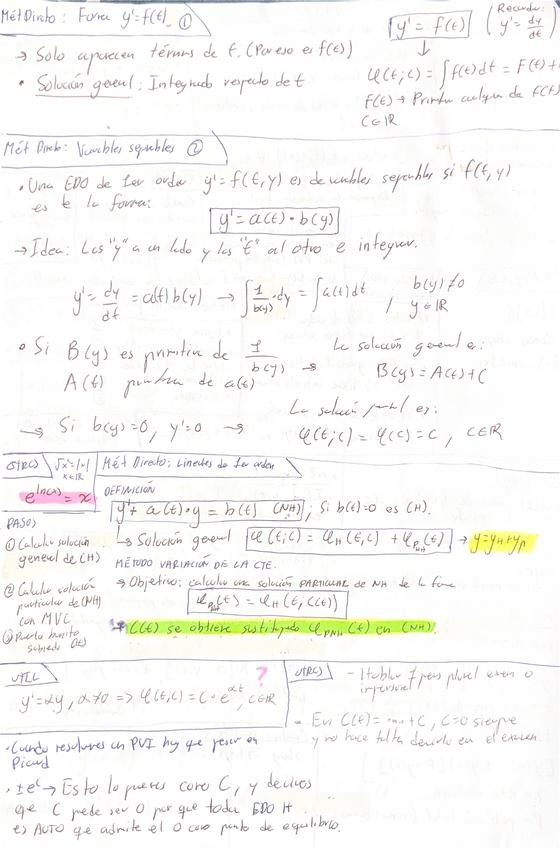 Mét Directo: Forma y'=f(t) ①
y' = f(t)
(Recordar: y' = dy/dt)
→ Solo aparecen términos de t. (Por eso es f(t))
• Solución general: Integrando respecto de t
φ(t;c) = ∫f(t)dt = F(t)+
F(t) → Primitiva cualquiera de f(t)
C∈ℝ
Mét Directo: Variables separables ②
• Una EDO de 1er orden y'=f(t,y) es de variables separables si f(t,y)
es de la forma:
y' = a(t)·b(y)
→ Idea: Las "y" a un lado y las "t" al otro e integrar.
y' = dy/dt = a(t)b(y) → ∫ 1/b(y) · dy = ∫a(t)dt , b(y)≠0
y∈ℝ
• Si B(y) es primitiva de 1/b(y) → La solución general es:
A(t) primitiva de a(t) B(y) = A(t)+C
→ Si b(y)=0, y'=0 → La solución es:
φ(t;c) = φ(c) = C, C∈ℝ
OTROS
√x² = |x|
x∈ℝ
e^ln(x) = x
Mét Directo: Lineales de 1er orden
DEFINICIÓN
y' + a(t)·y = b(t) (NH); Si b(t)=0 es (H).
↳ Solución general φ(t;c) = φ_H(t;c) + φ_PNH(t) → y=y_H+y_P
PASOS
① Calcular solución
general de (H)
② Calcular solución
particular de (NH)
con MVC
MÉTODO VARIACIÓN DE LA CTE.
→ Objetivo: calcular una solución PARTICULAR de NH de la forma
φ_PNH(t) = φ_H(t;C(t))
→ C(t) se obtiene sustituyendo φ_PNH(t) en (NH)
ÚTIL
?
y'=αy, α≠0 => φ(t;c) = C·e^αt, C∈ℝ
OTROS
- Hablar 1ª pers plural examen o
impersonal
- En C(t)=...+C, C=0 siempre
y no hace falta decirlo en el examen
• Cuando resolvemos un PVI hay que pensar en
Picard
• ±e^c → Esto lo pones como C, y decimos
que C puede ser 0 porque toda EDO H
es AUTO que admite el 0 como punto de equilibrio.